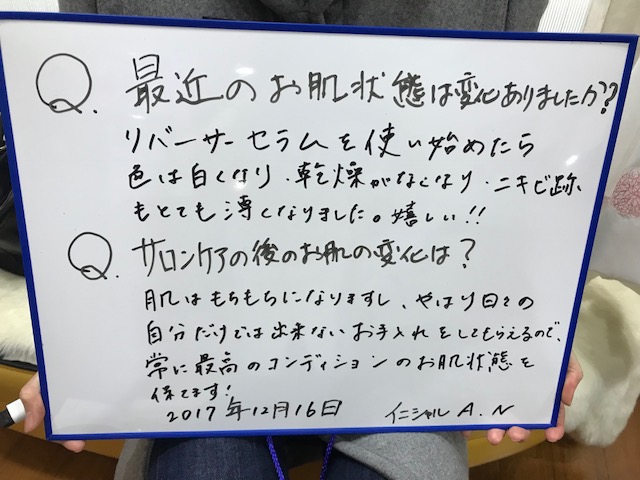 Q. 最近のお肌状態は変化ありましたか??
リバーサーセラムを使い始めたら
色は白くなり・乾燥がなくなり・ニキビ跡
もとても薄くなりました。嬉しい!!
Q. サロンケアの後のお肌の変化は?
肌はもちもちになりますし、やはり日々の
自分だけでは出来ないお手入れをしてもらえるので、
常に最高のコンディションのお肌状態を
保てます!
2017年12月16日 イニシャル A.N